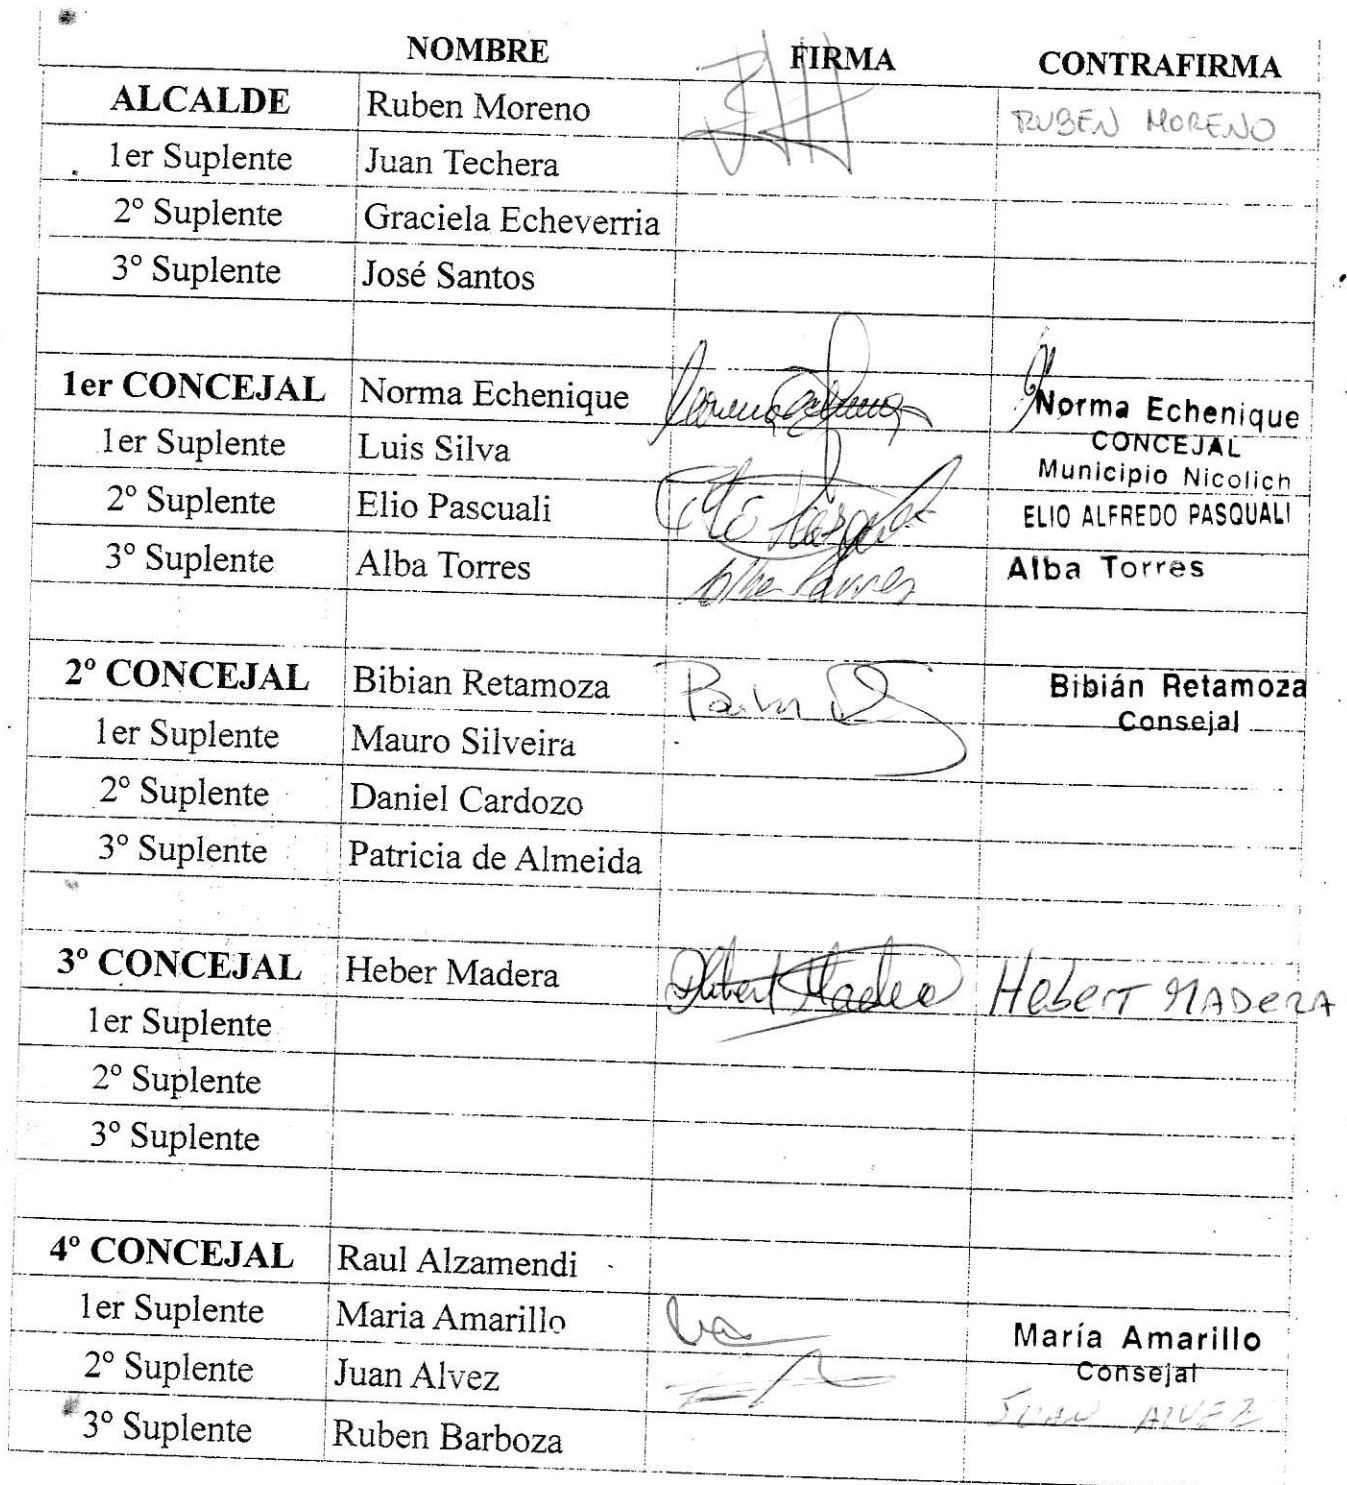 NOMBRE FIRMA CONTRAFIRMA
ALCALDE Ruben Moreno RUBEN MORENO
1er Suplente Juan Techera
2º Suplente Graciela Echeverria
3º Suplente José Santos
1er CONCEJAL Norma Echenique Norma Echenique
CONCEJAL
1er Suplente Luis Silva Municipio Nicolich
2º Suplente Elio Pascuali ELIO ALFREDO PASQUALI
3º Suplente Alba Torres Alba Torres Alba Torres
2º CONCEJAL Bibian Retamoza Bibián Retamoza
Consejal
1er Suplente Mauro Silveira
2º Suplente Daniel Cardozo
3º Suplente Patricia de Almeida
3º CONCEJAL Heber Madera Hebert Madera HeberT MADERA
1er Suplente
2º Suplente
3º Suplente
4º CONCEJAL Raul Alzamendi
1er Suplente Maria Amarillo María Amarillo
Consejal
2º Suplente Juan Alvez JUAN ALVEZ
3º Suplente Ruben Barboza